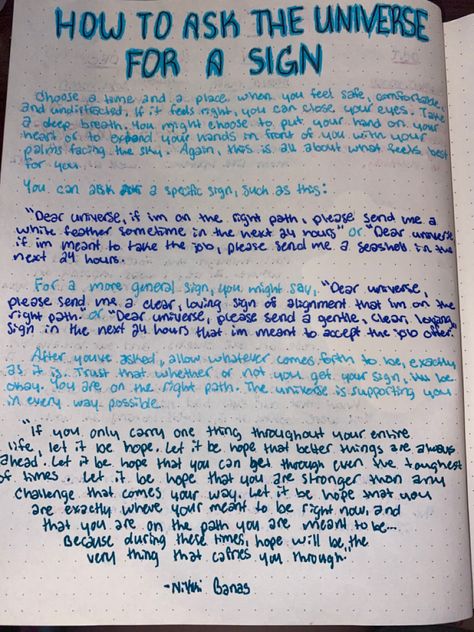 HOW TO ASK THE UNIVERSE
FOR A SIGN
Choose a time and a place when you feel safe, comfortable,
and undistracted. If it feels right, you can close your eyes. Take
a deep breath. You might choose to put your hand on your
heart or to expand your hands in front of you with your
palms facing the sky. Again, this is all about what feels best
for you.
You can ask for a specific sign, such as this:
"Dear universe, if im on the right path, please send me a
white feather sometime in the next 24 hours" or "Dear universe
if im meant to take the job, please send me a seashell in the
next 24 hours.
For a more general sign, you might say, "Dear universe,
please send me a clear, loving sign of alignment that im on the
right path" or "Dear universe, please send a gentle, clear, loving
sign in the next 24 hours that im meant to accept the job offer."
After you've asked, allow whatever comes forth to be, exactly
as it is. Trust that whether or not you get your sign, be
okay. You are on the right path. The universe is supporting you
in every way possible.
"If you only carry one thing throughout your entire
life, let it be hope. Let it be hope that better things are always
ahead. Let it be hope that you can get through even the toughest
of times. Let it be hope that you are stronger than any
challenge that comes your way. Let it be hope that you
are exactly where your meant to be right now, and
that you are on the path you are meant to be...
Because during these times, hope will be the
very thing that carries you through."
-Nikki Banas